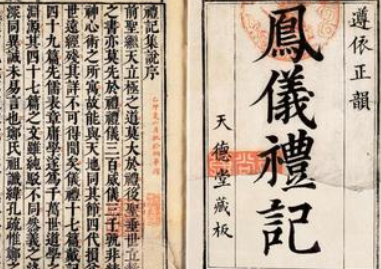 遵依正韻
鳳儀禮記
天德堂藏板
禮記集說序
前聖繼天立極之道莫大於禮後聖垂世立教
之書亦莫先於禮禮儀三百威儀三千孰非精
神心術之所寓故能與天地同其節四代損益
世遠經殘其詳不可得聞矣儀禮十七篇戴記
四十九篇先儒表章庸學遂爲千萬世道學之
淵源其四十七篇之文雖純駁不同然義之淺
深同異誠未易言也鄭氏祖讖緯孔疏惟鄭之